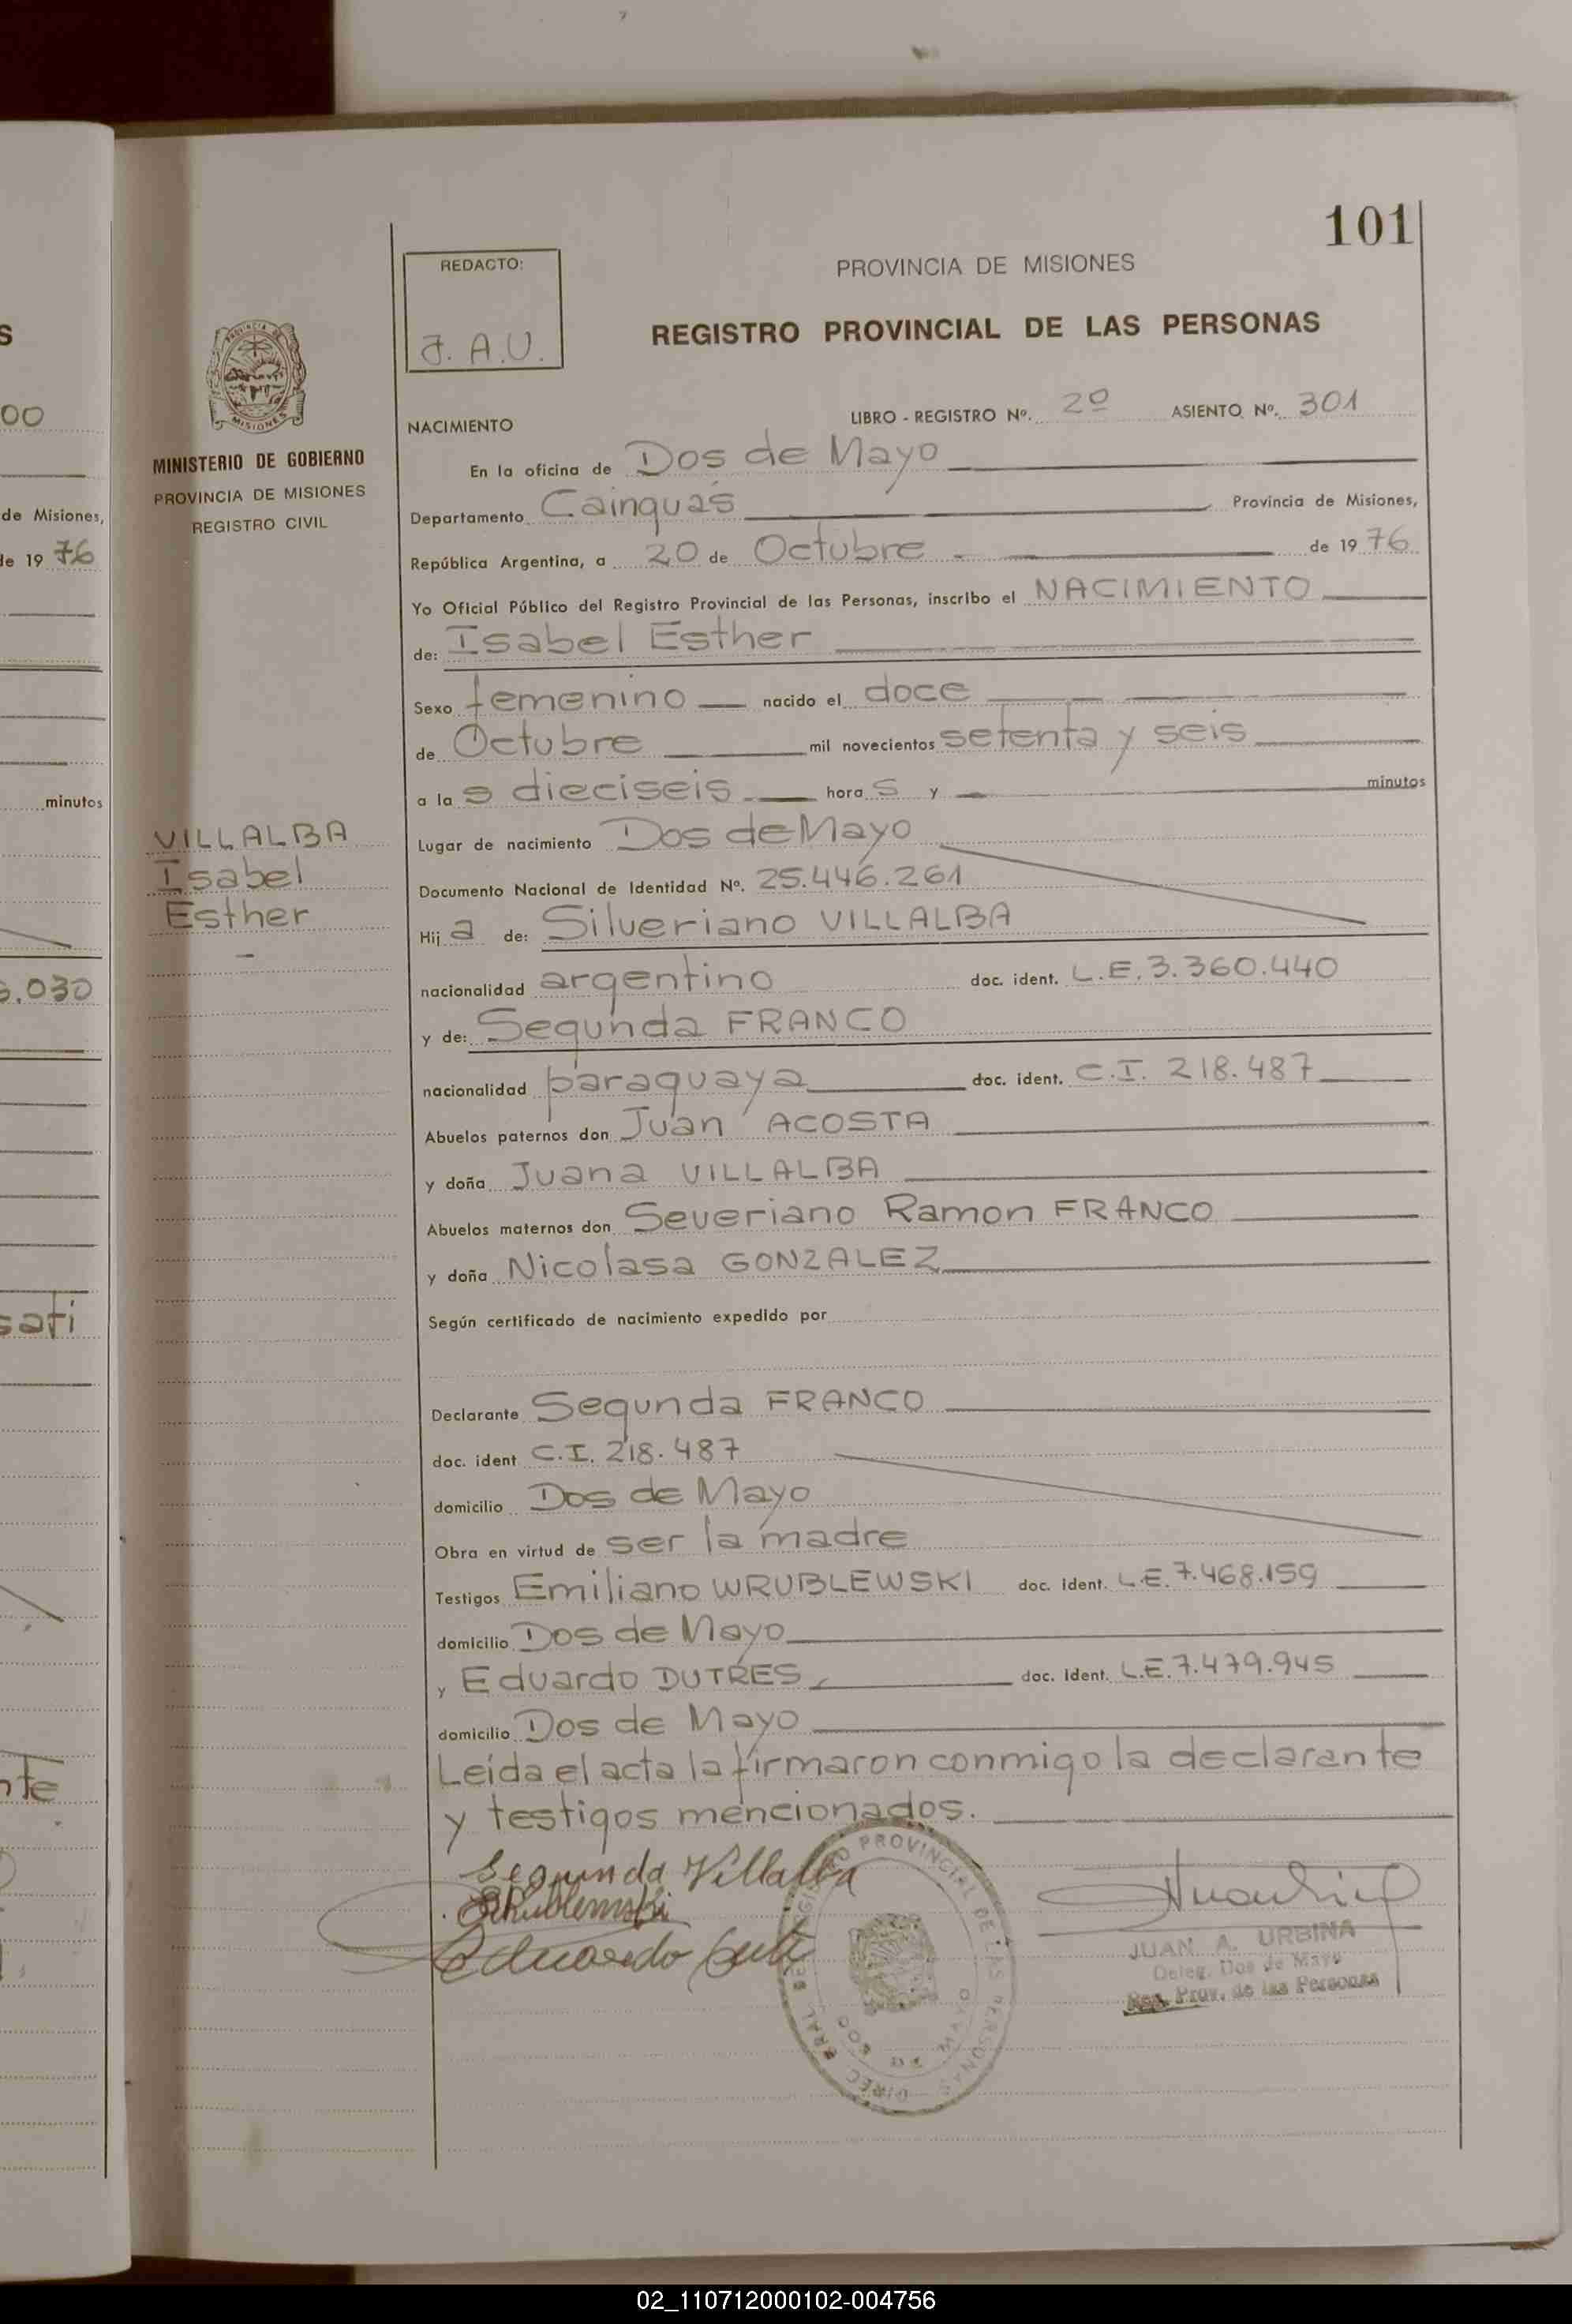 101
REDACTO:
J. A. U.
PROVINCIA DE MISIONES
REGISTRO PROVINCIAL DE LAS PERSONAS
MISIONES
MINISTERIO DE GOBIERNO
PROVINCIA DE MISIONES
REGISTRO CIVIL
NACIMIENTO LIBRO - REGISTRO Nº. 2º ASIENTO Nº. 301
En la oficina de Dos de Mayo
Departamento Cainguás Provincia de Misiones,
República Argentina, a 20 de Octubre de 19 76
Yo Oficial Público del Registro Provincial de las Personas, inscribo el NACIMIENTO
de: Isabel Esther
Sexo femenino nacido el doce
de Octubre mil novecientos setenta y seis
a la s dieciseis hora s y minutos
VILLALBA
Isabel
Esther
Lugar de nacimiento Dos de Mayo
Documento Nacional de Identidad Nº. 25.446.261
Hij a de: Silveriano VILLALBA
nacionalidad argentino doc. ident. L.E. 3.360.440
y de: Segunda FRANCO
nacionalidad paraguaya doc. ident. C.I. 218.487
Abuelos paternos don Juan ACOSTA
y doña Juana VILLALBA
Abuelos maternos don Severiano Ramon FRANCO
y doña Nicolasa GONZALEZ
Según certificado de nacimiento expedido por
Declarante Segunda FRANCO
doc. ident C.I. 218.487
domicilio Dos de Mayo
Obra en virtud de ser la madre
Testigos Emiliano WRUBLEWSKI doc. ident. L.E. 7.468.159
domicilio Dos de Mayo
y Eduardo DUTRES doc. Ident. L.E. 7.479.945
domicilio Dos de Mayo
Leída el acta la firmaron conmigo la declarante
y testigos mencionados.
Segunda Villalba
Eduardo
JUAN A. URBINA
Deleg. Dos de Mayo
Reg. Prov. de las Personas
S
00
de Misiones,
de 19 76
minutos
.030
sati
nte
02_110712000102-004756